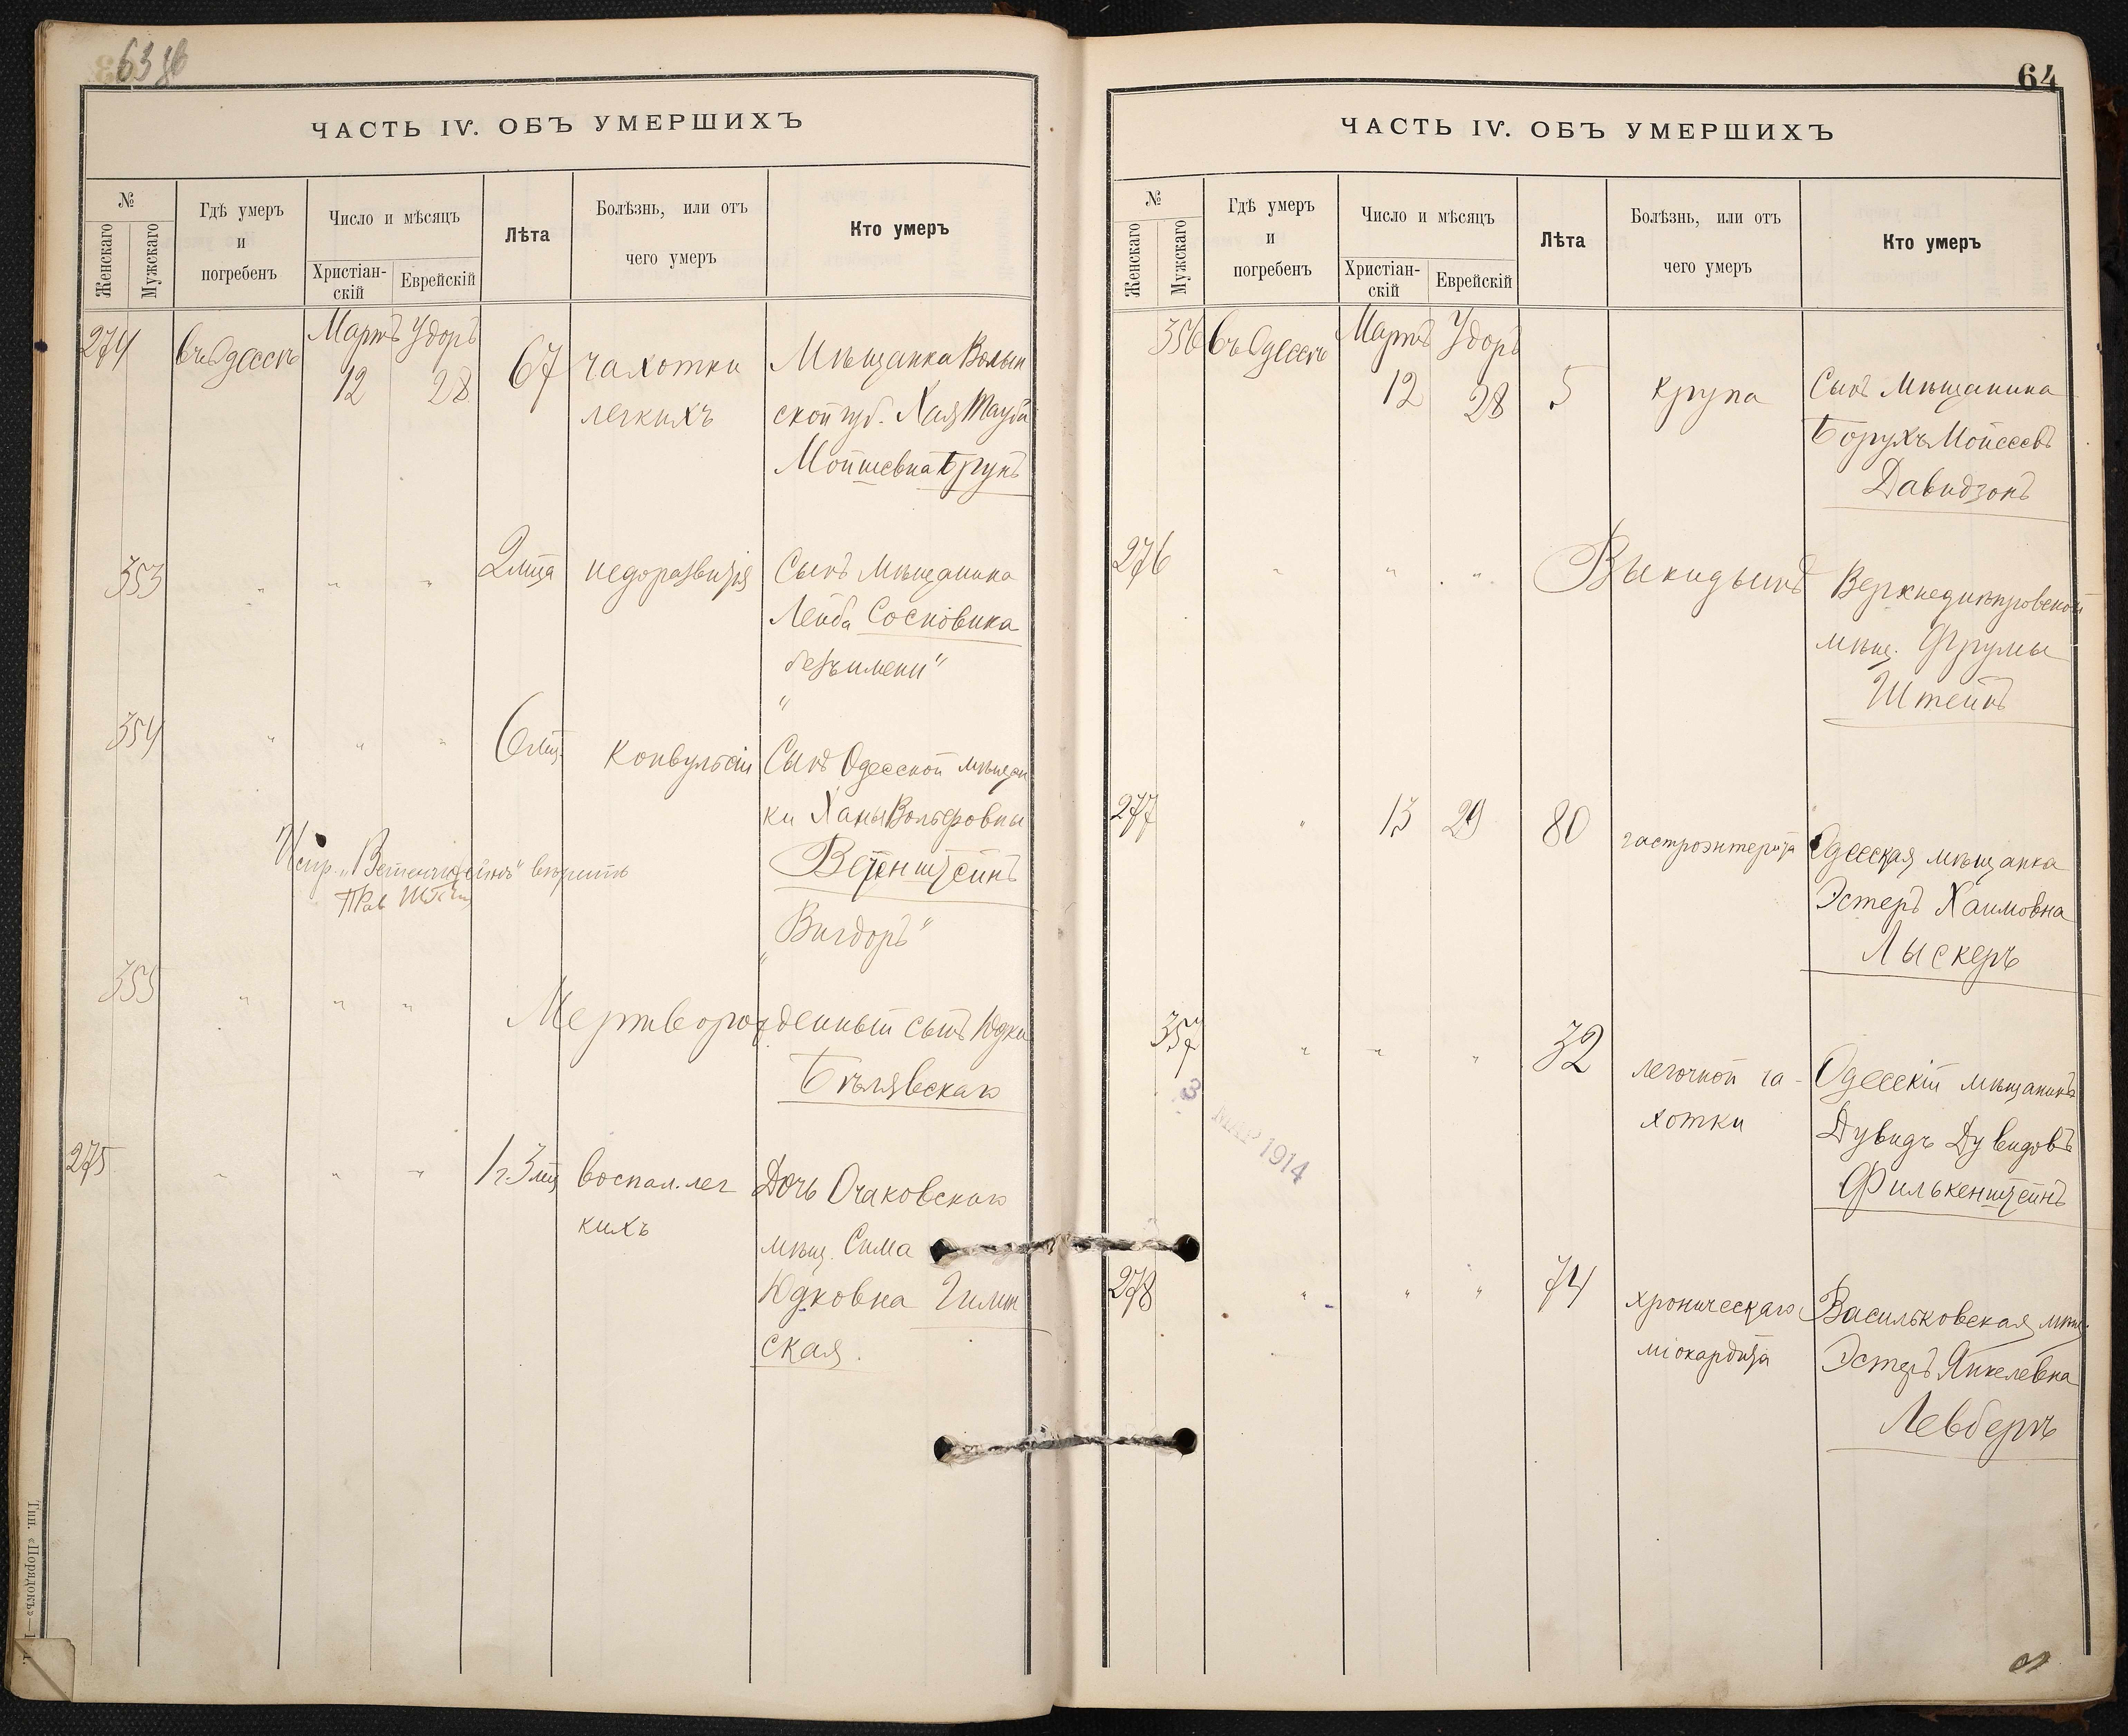 63 об
ЧАСТЬ IV. ОБЪ УМЕРШИХЪ
№
Женскаго
Мужскаго
Гдѣ умеръ
и
погребенъ
Число и мѣсяцъ
Христіан-
скій
Еврейскій
Лѣта
Болѣзнь, или отъ
чего умеръ
Кто умеръ
274 въ Одессѣ Мартъ 12 Удоръ 28 67 чахотки Мѣщанка Волын
легкихъ ской губ. Хая Тауба
Мойшевна Брунъ
353 " " " 2 мца недоразвитія Сынъ мѣщанина
Лейба Сосновика
"безъ имени"
354 " " " 6 мц. Конвульсіи Сынъ Одесской мѣщан
ки Ханы Вольфовны
Ветенштейнъ
"Вигдоръ"
Испр. "Ветенштейнъ" вѣрить
355 " " " Мертворожденный сынъ Юдки
Бѣлявскаго
275 " " " 1 г. 3 мц воспал. лег Дочь Очаковскаго
кихъ мѣщ. Сима
Юдковна
ская.
Тип. «Порядокъ»
64
ЧАСТЬ IV. ОБЪ УМЕРШИХЪ
№
Женскаго
Мужскаго
Гдѣ умеръ
и
погребенъ
Число и мѣсяцъ
Христіан-
скій
Еврейскій
Лѣта
Болѣзнь, или отъ
чего умеръ
Кто умеръ
356 въ Одессѣ Мартъ 12 Удоръ 28 5 крупа Сынъ мѣщанина
Борухъ Мойсеевъ
Давидзонъ
276 " " " Выкидышъ Верхнеднѣпровской
мѣщ. Фрумы
Штейнъ
277 " 13 29 80 гастроэнтерита Одесская мѣщанка
Эстеръ Хаимовна
Лыскеръ
357 " " " 32 легочной ча- Одесскій мѣщанинъ
хотки Дувидъ Дувидовъ
Филькенштейнъ
3 МАР 1914
278 " " " 74 хроническаго Васильковская мѣщ.
міокардита Эстеръ Янкелевна
Левбергъ